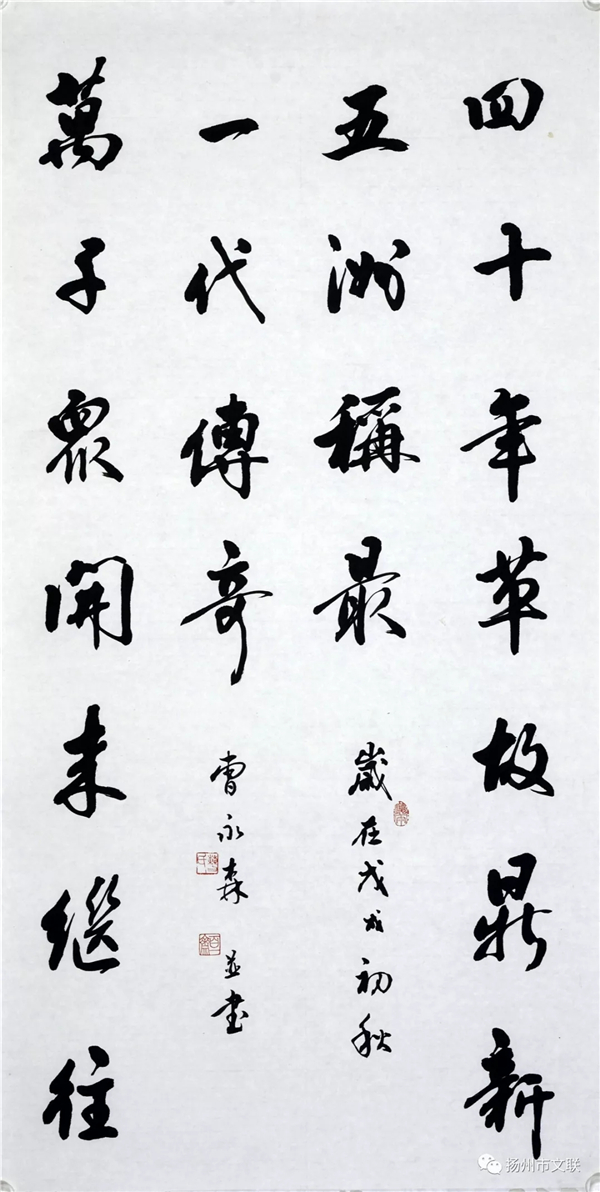 四十年革故鼎新
五洲稱最
萬子眾開来繼往
一代傳奇
歲在戊戌初秋
曹永森並书
扬州市文联